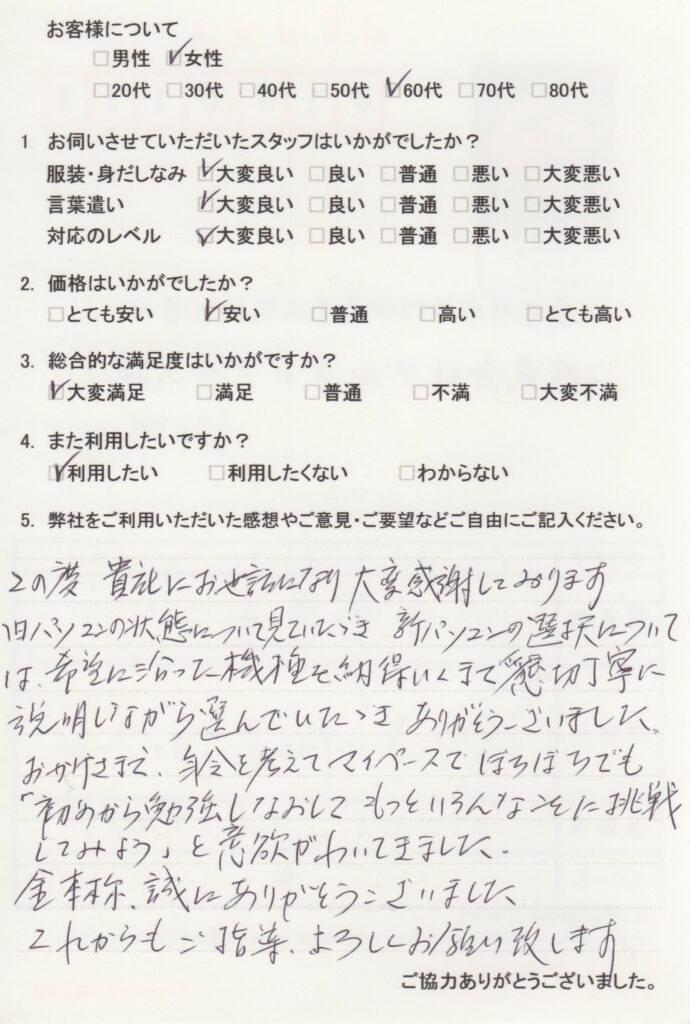 お客様について
□男性 ☑女性
□20代 □30代 □40代 □50代 ☑60代 □70代 □80代
1 お伺いさせていただいたスタッフはいかがでしたか？
服装・身だしなみ ☑大変良い □良い □普通 □悪い □大変悪い
言葉遣い ☑大変良い □良い □普通 □悪い □大変悪い
対応のレベル ☑大変良い □良い □普通 □悪い □大変悪い
2. 価格はいかがでしたか？
□とても安い ☑安い □普通 □高い □とても高い
3. 総合的な満足度はいかがですか？
☑大変満足 □満足 □普通 □不満 □大変不満
4. また利用したいですか？
☑利用したい □利用したくない □わからない
5. 弊社をご利用いただいた感想やご意見・ご要望などご自由にご記入ください。
この度 貴社にお世話になり 大変感謝しております
旧パソコンの状態について見ていただき 新パソコンの選択について
は、希望に沿った機種を納得いくまで懇切丁寧に
説明しながら選んでいただき ありがとうございました。
おかげさまで、年令を考えてマイペースで ぼちぼちでも
「初めから勉強しなおして もっといろんなことに挑戦
してみよう」と意欲がわいてきました。
誠にありがとうございました
これからもご指導、よろしくお願い致します
ご協力ありがとうございました。